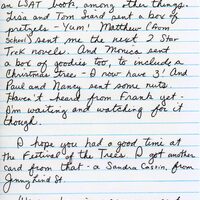 an LSAT book, among other things.
Lisa and Tom Gard sent a box of
pretzels - Yum! Matthew (from
school) sent me the next 2 Star
Trek novels. And Monica sent
a box of goodies too, to include a
Christmas tree - I now have 3! And
Paul and Nancy sent some nuts.
Haven't heard from Frank yet.
I'm waiting and watching for it
though.
I hope you had a good time at
the Festival of the Trees. I got another
card from that - a Sandra from
Jenny Lind St.